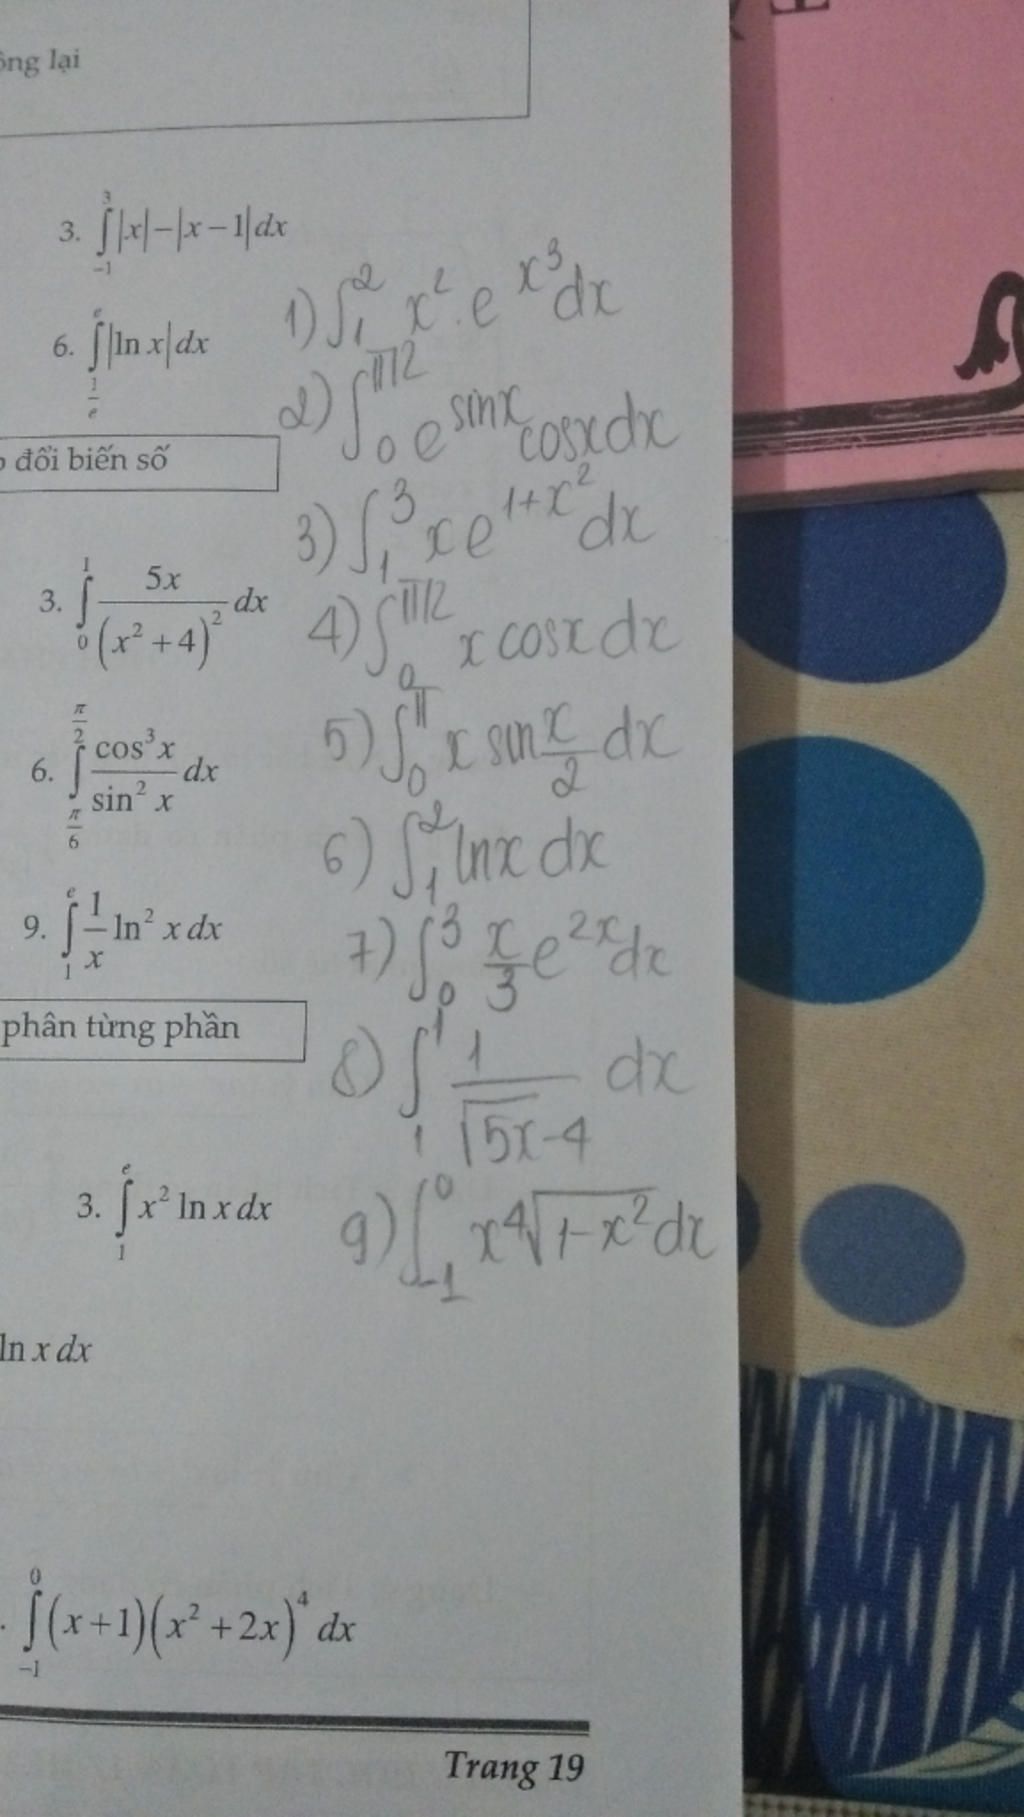 ông lại
3. ∫_{-1}^{3} |x| − |x − 1| dx
1) ∫_1^2 x² . e^{x³} dx
6. ∫_{1/e}^{e} |ln x| dx
2) ∫_0^{π/2} e^{sinx} cosx dx
đổi biến số
3) ∫_1^3 x e^{1+x²} dx
3. ∫_0^1 5x/(x² + 4)² dx
4) ∫_0^{π/2} x cosx dx
5) ∫_0^π x sin x/2 dx
6. ∫_{π/6}^{π/2} cos³ x/sin² x dx
6) ∫_1^2 lnx dx
9. ∫_1^e 1/x ln² x dx
7) ∫_0^3 x/3 e^{2x} dx
phân từng phần
8) ∫_1^1 1/(√5x - 4) dx
3. ∫_1^e x² ln x dx
9) ∫_{-1}^0 x⁴√(1-x²) dx
ln x dx
. ∫_{-1}^0 (x + 1)(x² + 2x)⁴ dx
Trang 19